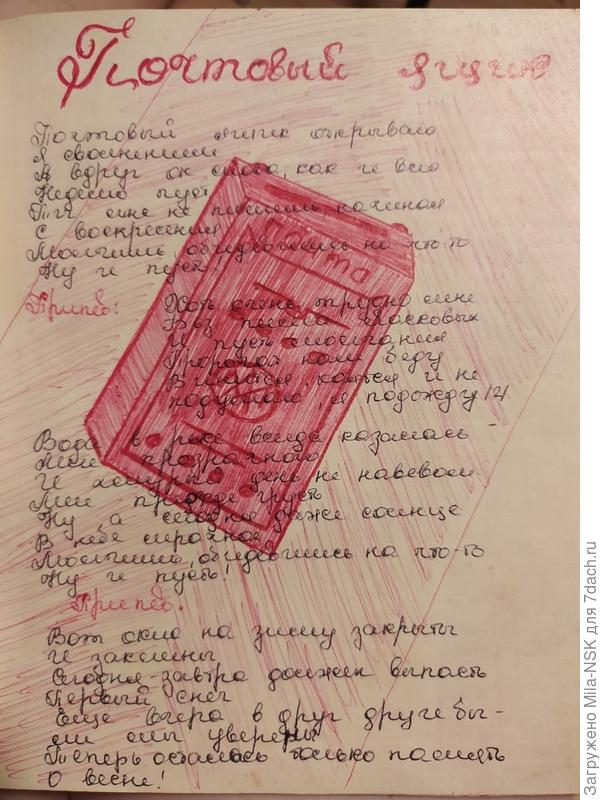 Почтовый ящик
Почтовый ящик открываю
Я с волнением
А вдруг он снова, как и всю
Неделю пуст
Ты мне не пишешь, начиная
С воскресения
Молчишь, обидевшись на что-то
Ну и пусть!
Припев:
Хоть очень трудно мне
Без писем ласковых
И пусть молчания
Пророчат нам беду
Виниться, каяться и не
подумаю, я подожду /2
почта
Вода в реке всегда казалась
Мне прозрачною
И хмурый день не навевал
Мне прежде грусть
Ну, а сегодня даже солнце
В небе мрачное
Молчишь, обидевшись на что-то
Ну и пусть!
Припев.
Вот окно на зиму закрыты
И заклеены
Сегодня-завтра должен выпасть
Первый снег
Еще вчера в друг друге бы-
ли мы уверены
Теперь осталась только память
О весне!
Загружено Mila-NSK для 7dach.ru